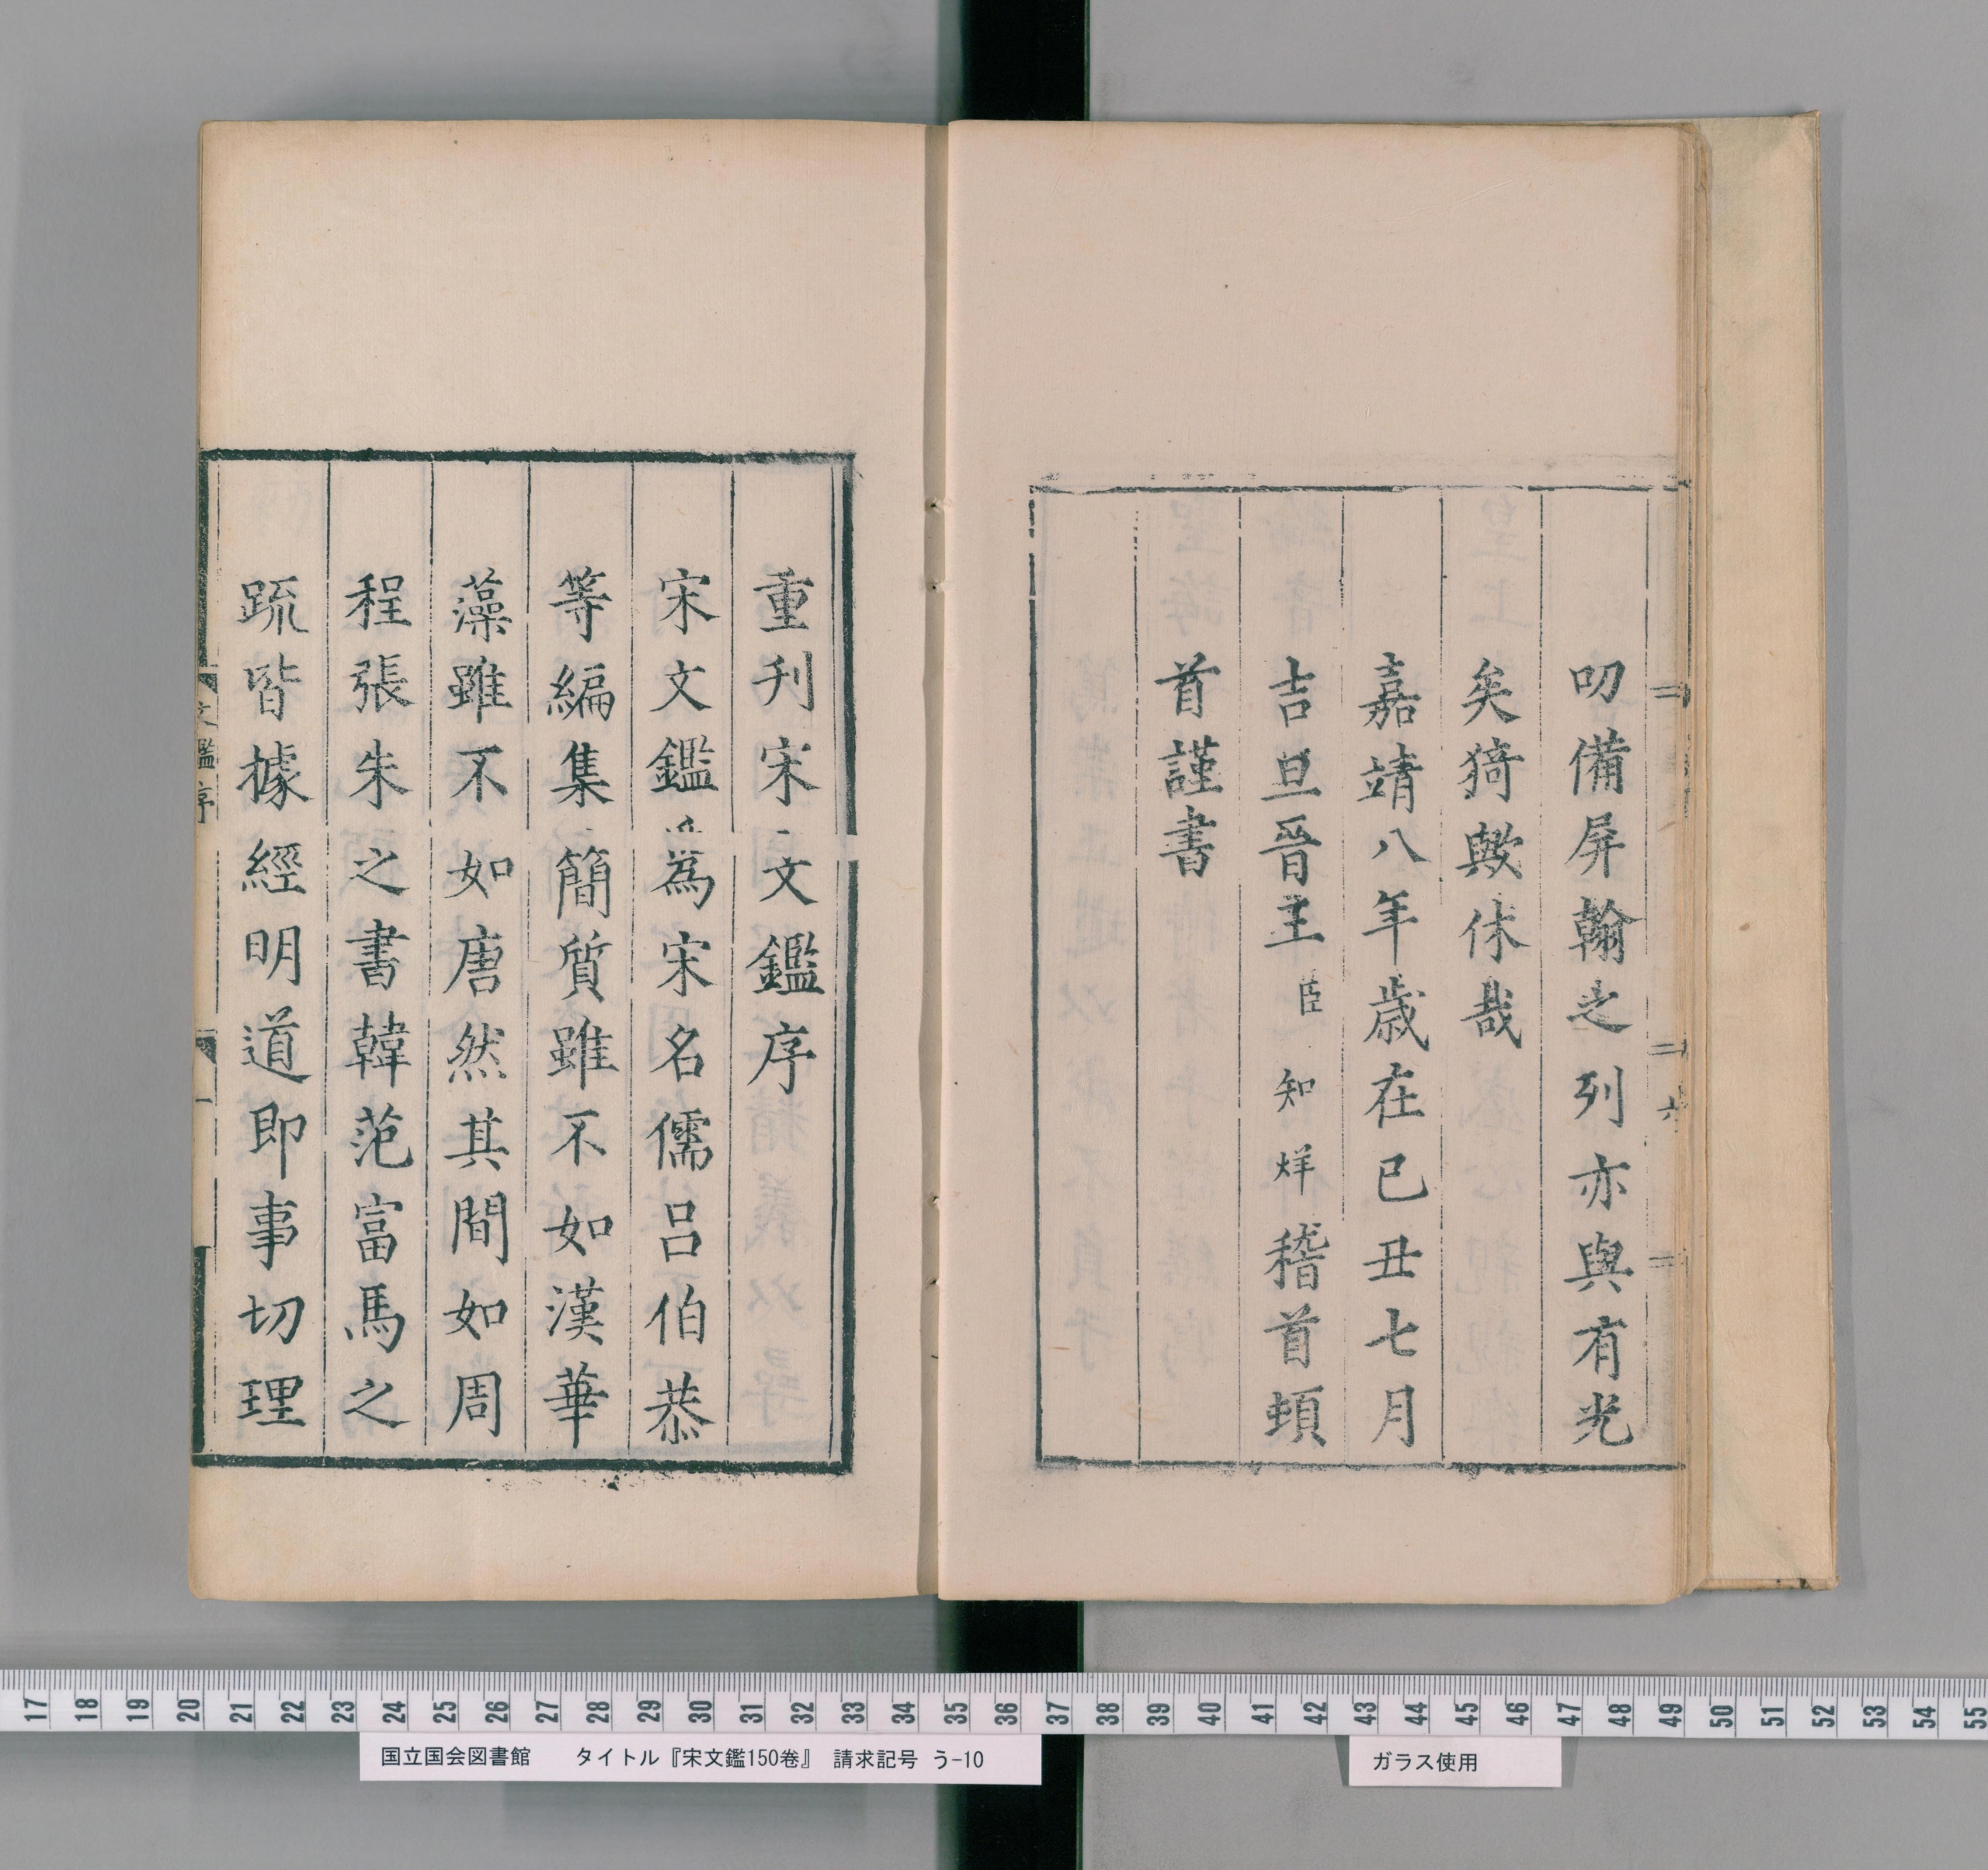 叨備屏翰之列亦與有光
矣猗歟休哉
嘉靖八年歲在已丑七月
吉旦晉王臣知烊稽首頓
首謹書
六
重刋宋文鑑序
宋文鑑為宋名儒吕伯恭
等編集簡質雖不如漢華
藻雖不如唐然其間如周
程張朱之書韓范富馬之
疏皆據經明道即事切理
文鑑序
一
17 18 19 20 21 22 23 24 25 26 27 28 29 30 31 32 33 34 35 36 37 38 39 40 41 42 43 44 45 46 47 48 49 50 51 52 53 54 55
国立国会図書館 タイトル『宋文鑑150巻』 請求記号 う-10
ガラス使用